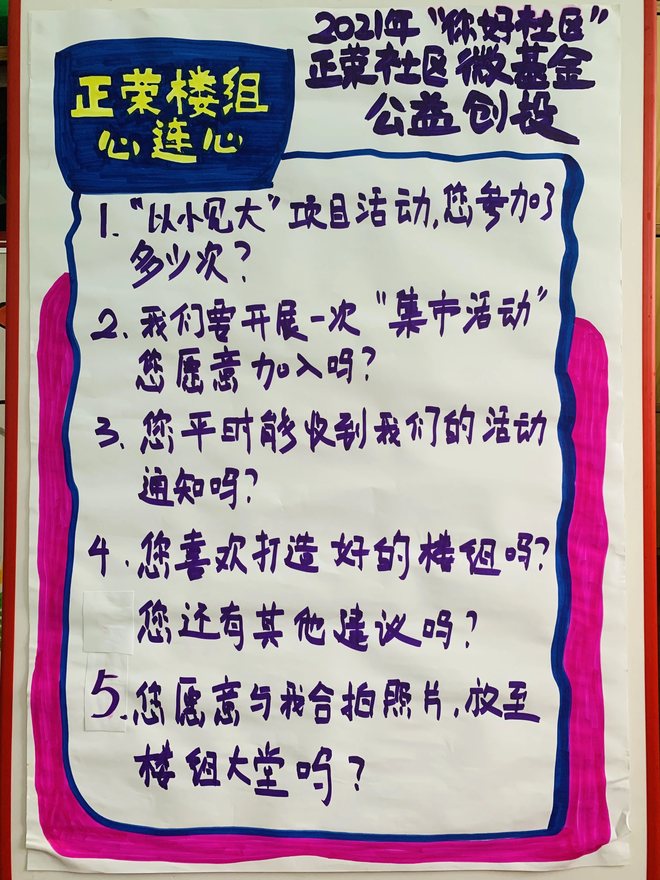 2021年“你好社区”
正荣社区微基金
公益创投
正荣楼组
心连心
1.“以小见大”项目活动,您参加了
多少次?
2.我们要开展一次“集市活动”
您愿意加入吗?
3.您平时能收到我们的活动
通知吗?
4.您喜欢打造好的楼组吗?
您还有其他建议吗?
5.您愿意与我合拍照片,放至
楼组大堂吗?